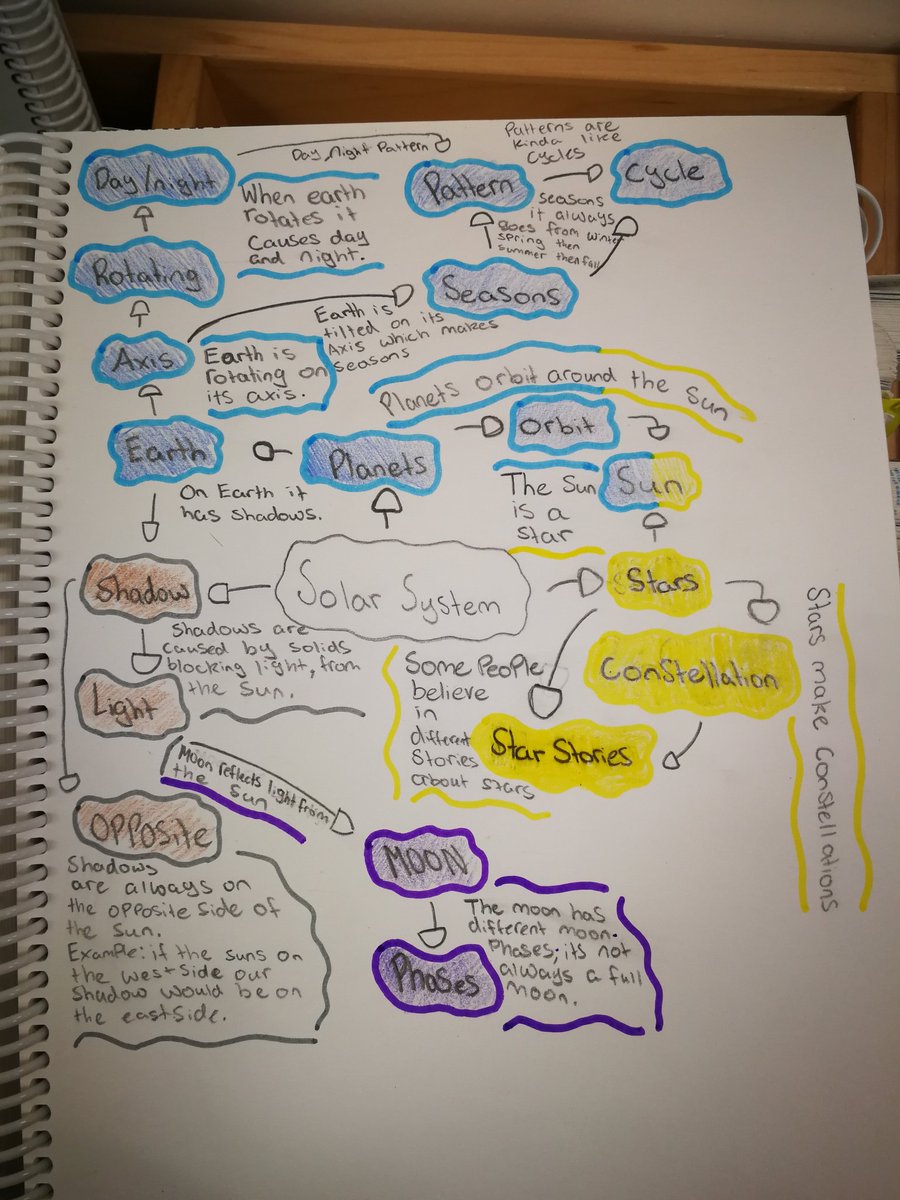 Day/night
Day Night Pattern
Pattern
Patterns are
kinda like
cycles
Cycle
When earth
rotates it
causes day
and night.
seasons
it always
goes from winter
spring then
summer then fall
Rotating
Seasons
Earth is
tilted on its
Axis which makes
seasons
Axis
Earth is
rotating on
its axis.
Planets orbit around the Sun
Earth
Planets
Orbit
Sun
The Sun
is a
star
On Earth it
has shadows.
Shadow
Solar System
Stars
Shadows are
caused by solids
blocking light, from
the sun.
Light
Some People
believe
in
different
Stories
about stars
Constellation
Star Stories
Stars make Constellations
Moon reflects light from
the Sun
OPPosite
Shadows
are always on
the opposite side of
the sun.
Example: if the suns on
the west side our
shadow would be on
the eastside.
MOON
Phases
The moon has
different moon.
Phases; its not
always a full
moon.